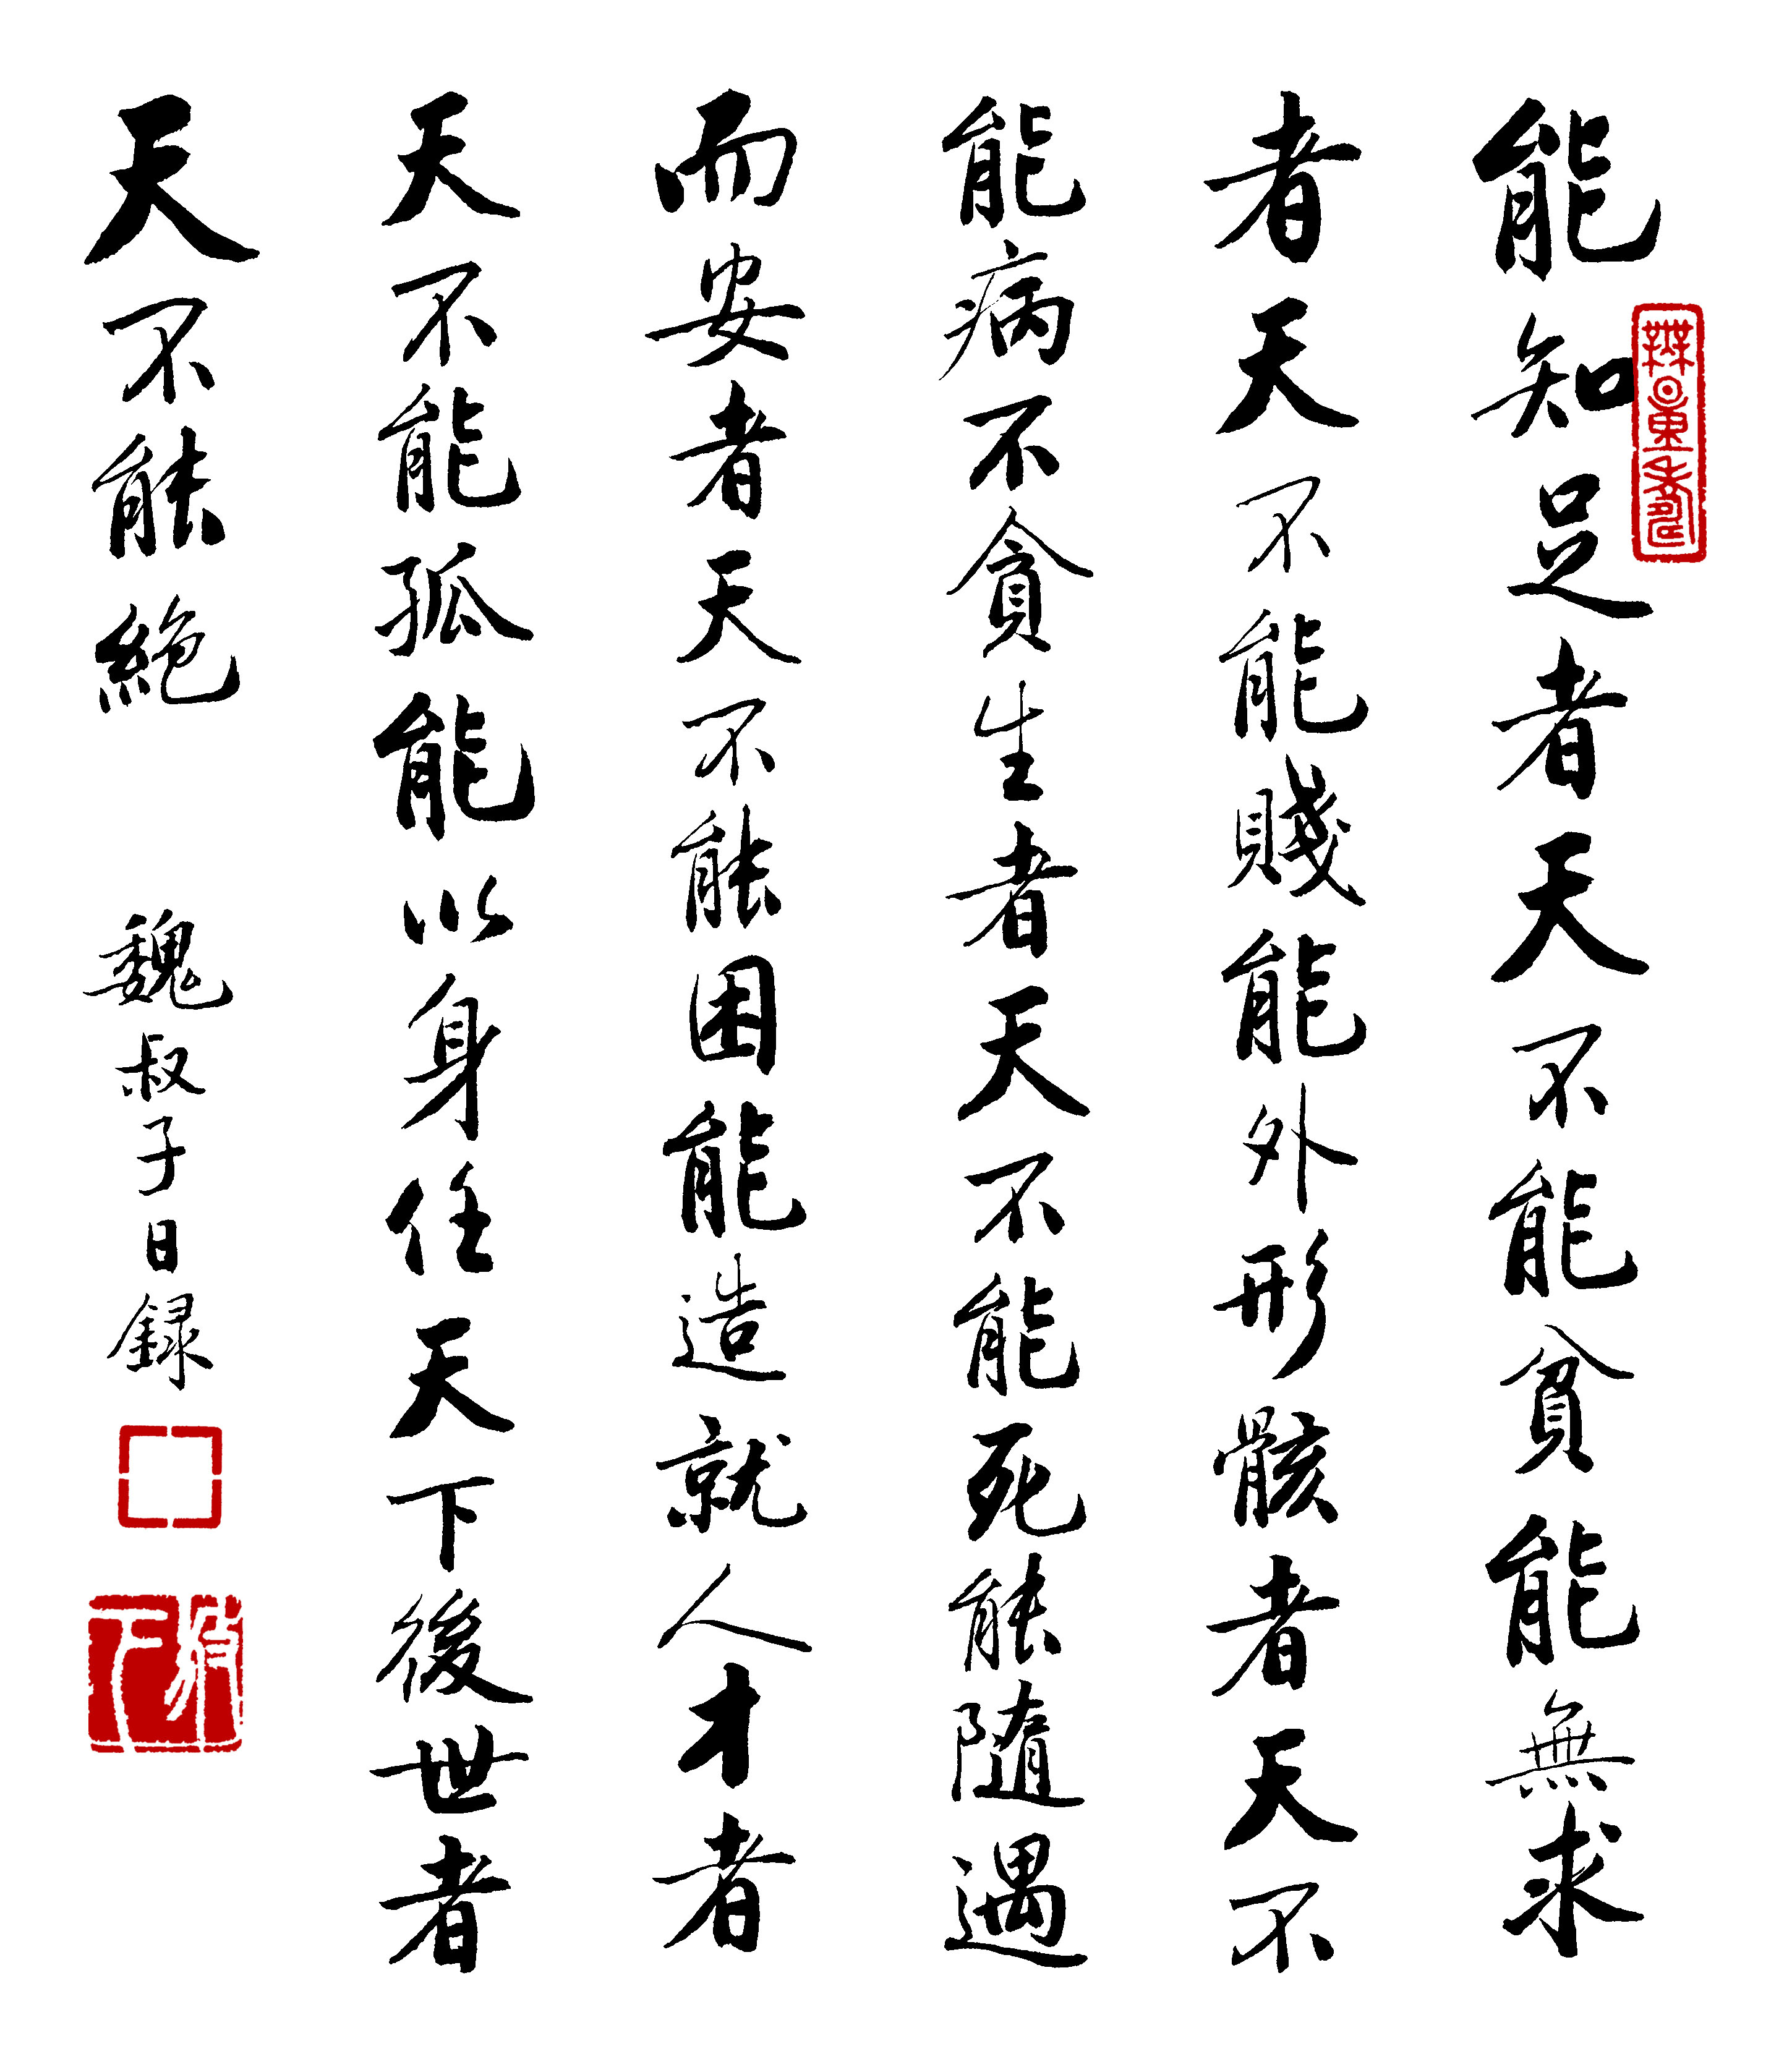 能知足者天不能貧能無求
者天不能賤能外形骸者天不
能病不貪生者天不能死能隨遇
而安者天不能困能造就人才者
天不能孤能以身任天下後世者
天不能絕
魏叔子日録
無量壽